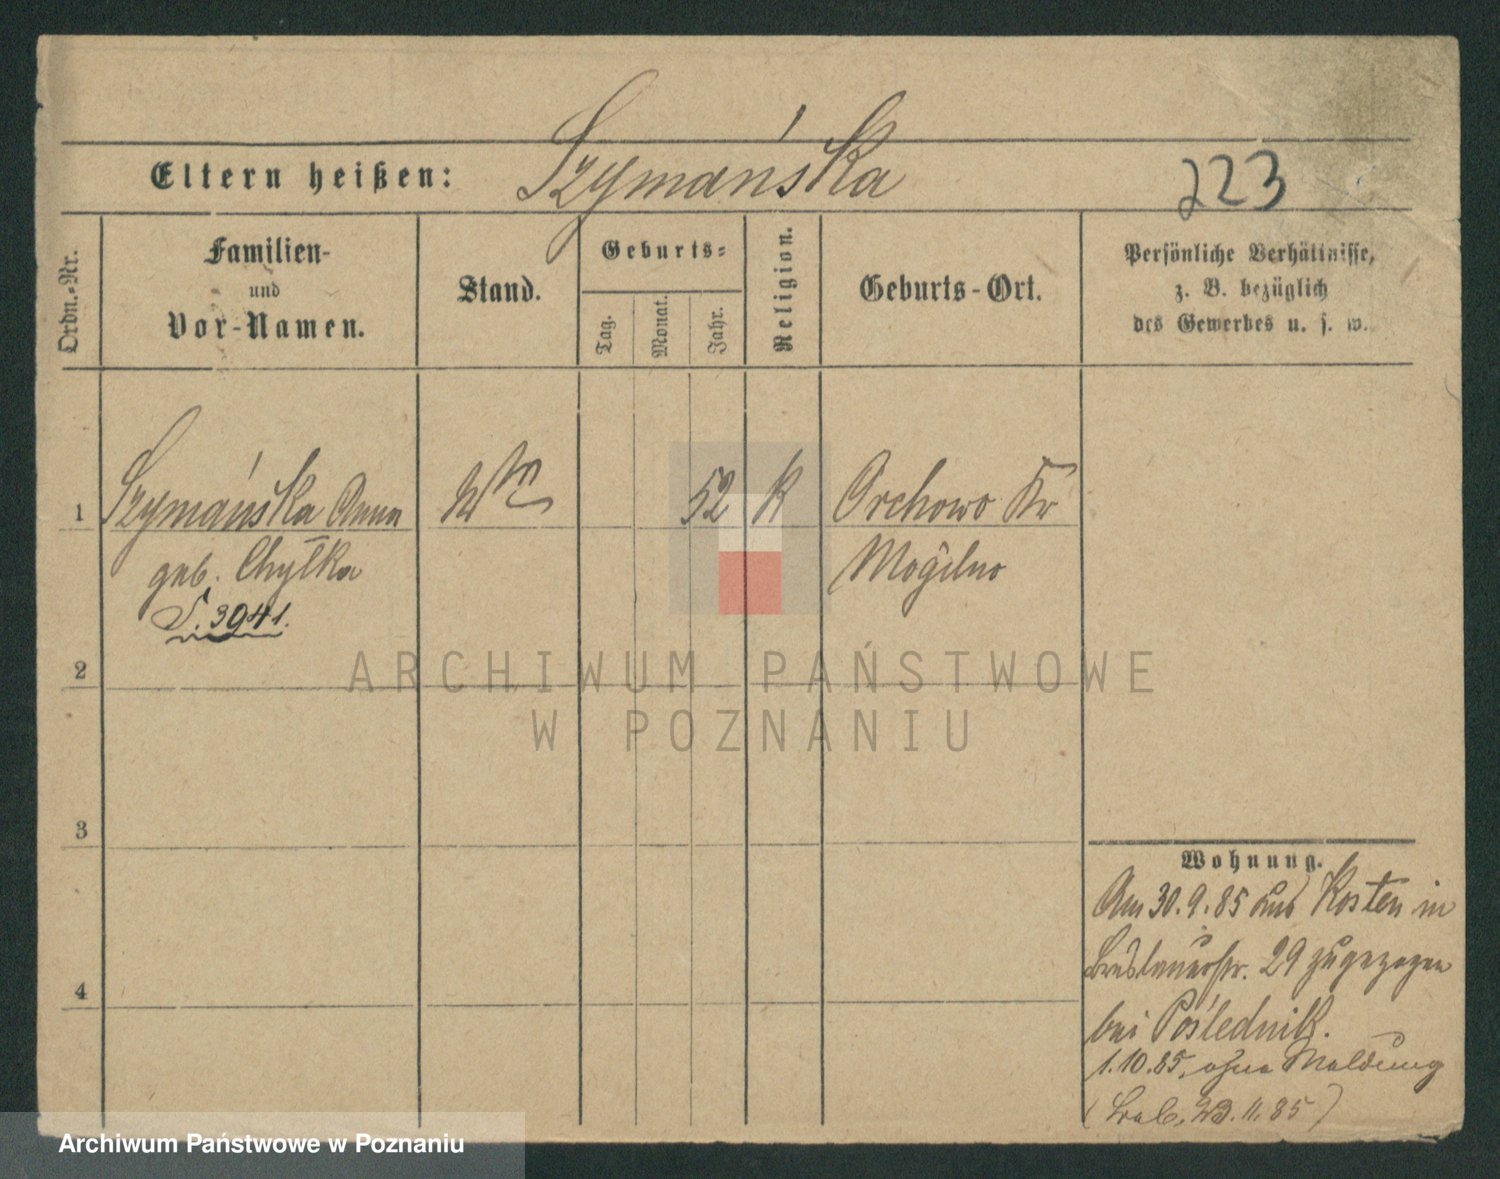 Eltern heißen: Szymańska
223
Ordn.-Nr.
Familien-
und
Vor-Namen.
Stand.
Geburts-
Tag.
Monat.
Jahr.
Religion.
Geburts-Ort.
Persönliche Verhältnisse,
z. B. bezüglich
des Gewerbes u. s. w.
1 Szymańska Anna 52 k Orchowo Kr
geb. Chyłka Mogilno
S. 3941.
2
3
4
Wohnung.
Am 30.9.85 aus Kosten in
Breslauerstr. 29 zugezogen
bei Poślednik.
1.10.85, ohne Meldung
23.11.85)
ARCHIWUM PAŃSTWOWE
W POZNANIU
Archiwum Państwowe w Poznaniu